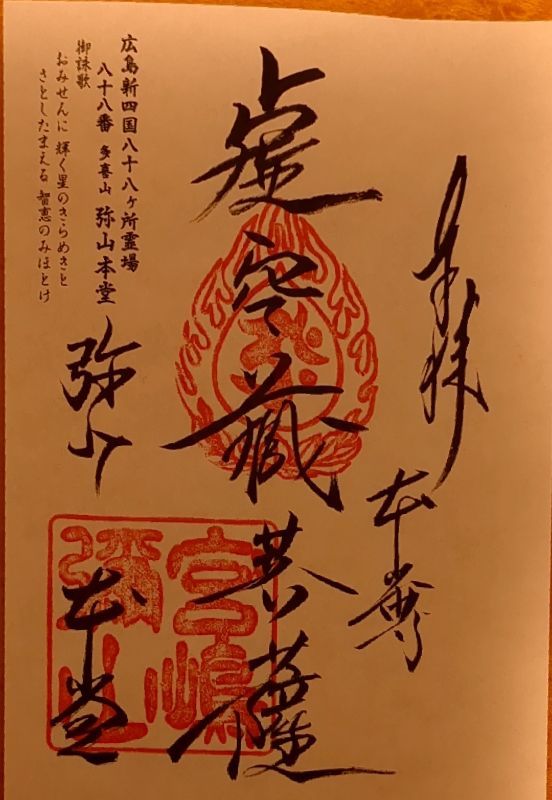 奉拝
本尊
虚空蔵菩薩
広島新四国八十八ヶ所霊場
八十八番 多喜山 弥山本堂
御詠歌
おみせんに 輝く星のきらめきと
さとしたまえる 智恵のみほとけ
弥山
本堂
宮嶋
彌山